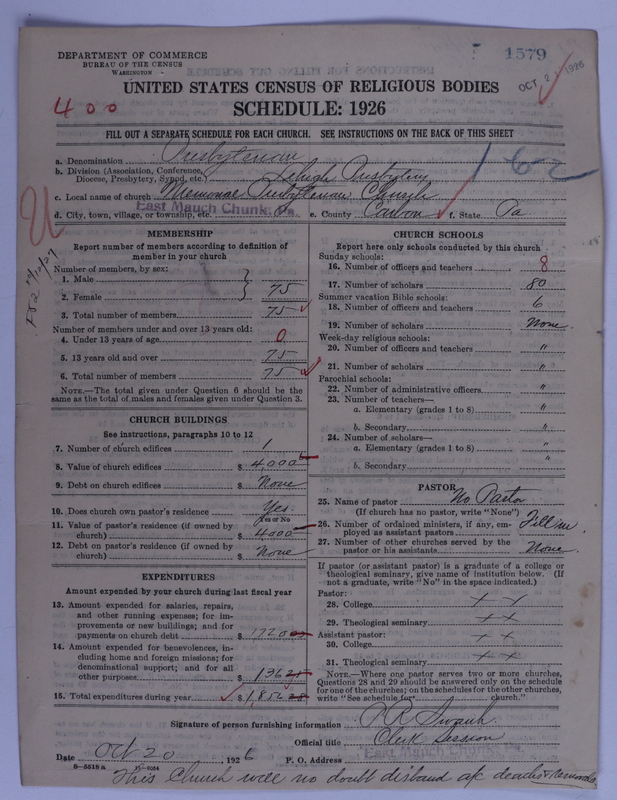 1579
DEPARTMENT OF COMMERCE
BUREAU OF THE CENSUS
WASHINGTON
OCT 2 1926
UNITED STATES CENSUS OF RELIGIOUS BODIES
400
SCHEDULE: 1926
FILL OUT A SEPARATE SCHEDULE FOR EACH CHURCH. SEE INSTRUCTIONS ON THE BACK OF THIS SHEET
a. Denomination Presbyterian
b. Division (Association, Conference, Diocese, Presbytery, Synod, etc.) Lehigh Presbytery
62
c. Local name of church Memorial Presbyterian Church
d. City, town, village, or township, etc. East Mauch Chunk, Pa. e. County Carbon f. State Pa
U
MEMBERSHIP
Report number of members according to definition of
member in your church
Number of members, by sex:
1. Male
2. Female } 75
3. Total number of members 75
Number of members under and over 13 years old:
4. Under 13 years of age 0
5. 13 years old and over 75
6. Total number of members 75
NOTE.—The total given under Question 6 should be the
same as the total of males and females given under Question 3.
CHURCH BUILDINGS
See instructions, paragraphs 10 to 12
7. Number of church edifices 1
8. Value of church edifices $ 4000
9. Debt on church edifices $ None
10. Does church own pastor's residence Yes
Yes or No
11. Value of pastor's residence (if owned by
church) $ 4000
12. Debt on pastor's residence (if owned by
church) $ None
EXPENDITURES
Amount expended by your church during last fiscal year
13. Amount expended for salaries, repairs,
and other running expenses; for im-
provements or new buildings; and for
payments on church debt $ 1720
14. Amount expended for benevolences, in-
cluding home and foreign missions; for
denominational support; and for all
other purposes $ 136
15. Total expenditures during year $ 1856
CHURCH SCHOOLS
Report here only schools conducted by this church
Sunday schools:
16. Number of officers and teachers 8
17. Number of scholars 80
Summer vacation Bible schools:
18. Number of officers and teachers 6
19. Number of scholars None
Week-day religious schools:
20. Number of officers and teachers "
21. Number of scholars "
Parochial schools:
22. Number of administrative officers "
23. Number of teachers—
a. Elementary (grades 1 to 8) "
b. Secondary "
24. Number of scholars—
a. Elementary (grades 1 to 8) "
b. Secondary "
PASTOR
25. Name of pastor No Pastor
(If church has no pastor, write "None")
26. Number of ordained ministers, if any, em-
ployed as assistant pastors
27. Number of other churches served by the
pastor or his assistants None
If pastor (or assistant pastor) is a graduate of a college or
theological seminary, give name of institution below. (If
not a graduate, write "No" in the space indicated.)
Pastor:
28. College x x
29. Theological seminary x x
Assistant pastor:
30. College x x
31. Theological seminary x x
NOTE.—Where one pastor serves two or more churches,
Questions 28 and 29 should be answered only on the schedule
for one of the churches; on the schedules for the other churches,
write "See schedule for church."
Signature of person furnishing information
Official title Clerk Session
Date Oct 20, 1926 P. O. Address East Mauch Chunk, Pa.
8—5518 a
This Church will no doubt disband